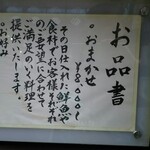 お品書
。おまかせ
¥8,000〜
その日仕入れた鮮魚や
食材でお客様それぞれ
の要望に合わせて
ご満足のいく料理を
提供いたします。
。お好み